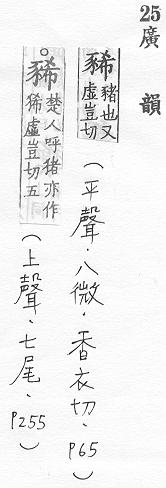 25 廣韻
豨 豬也又虛豈切(平聲·八微·香衣切·P65)
。豨 楚人呼猪亦作狶虛豈切五(上聲·七尾·P255)